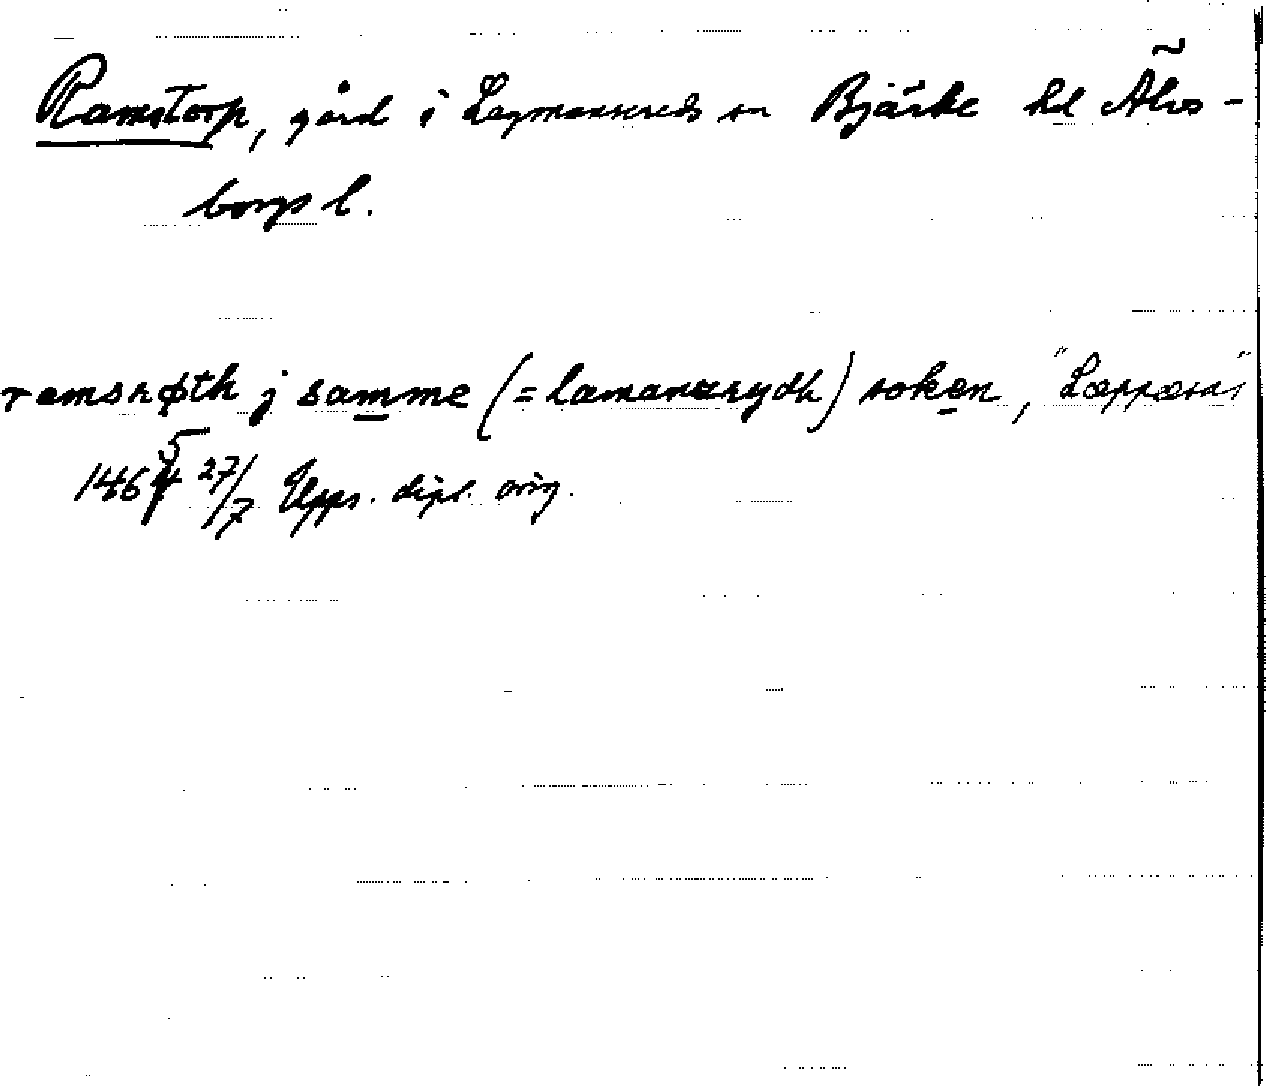 Ramstorp, gård i Lagmansereds sn Bjärke hd Älvs-
borgs l.
ramsrøth j samme (= lamanærydh) sokæn, "Læppæsni"
1465 27/7 Upps. dipl. orig.